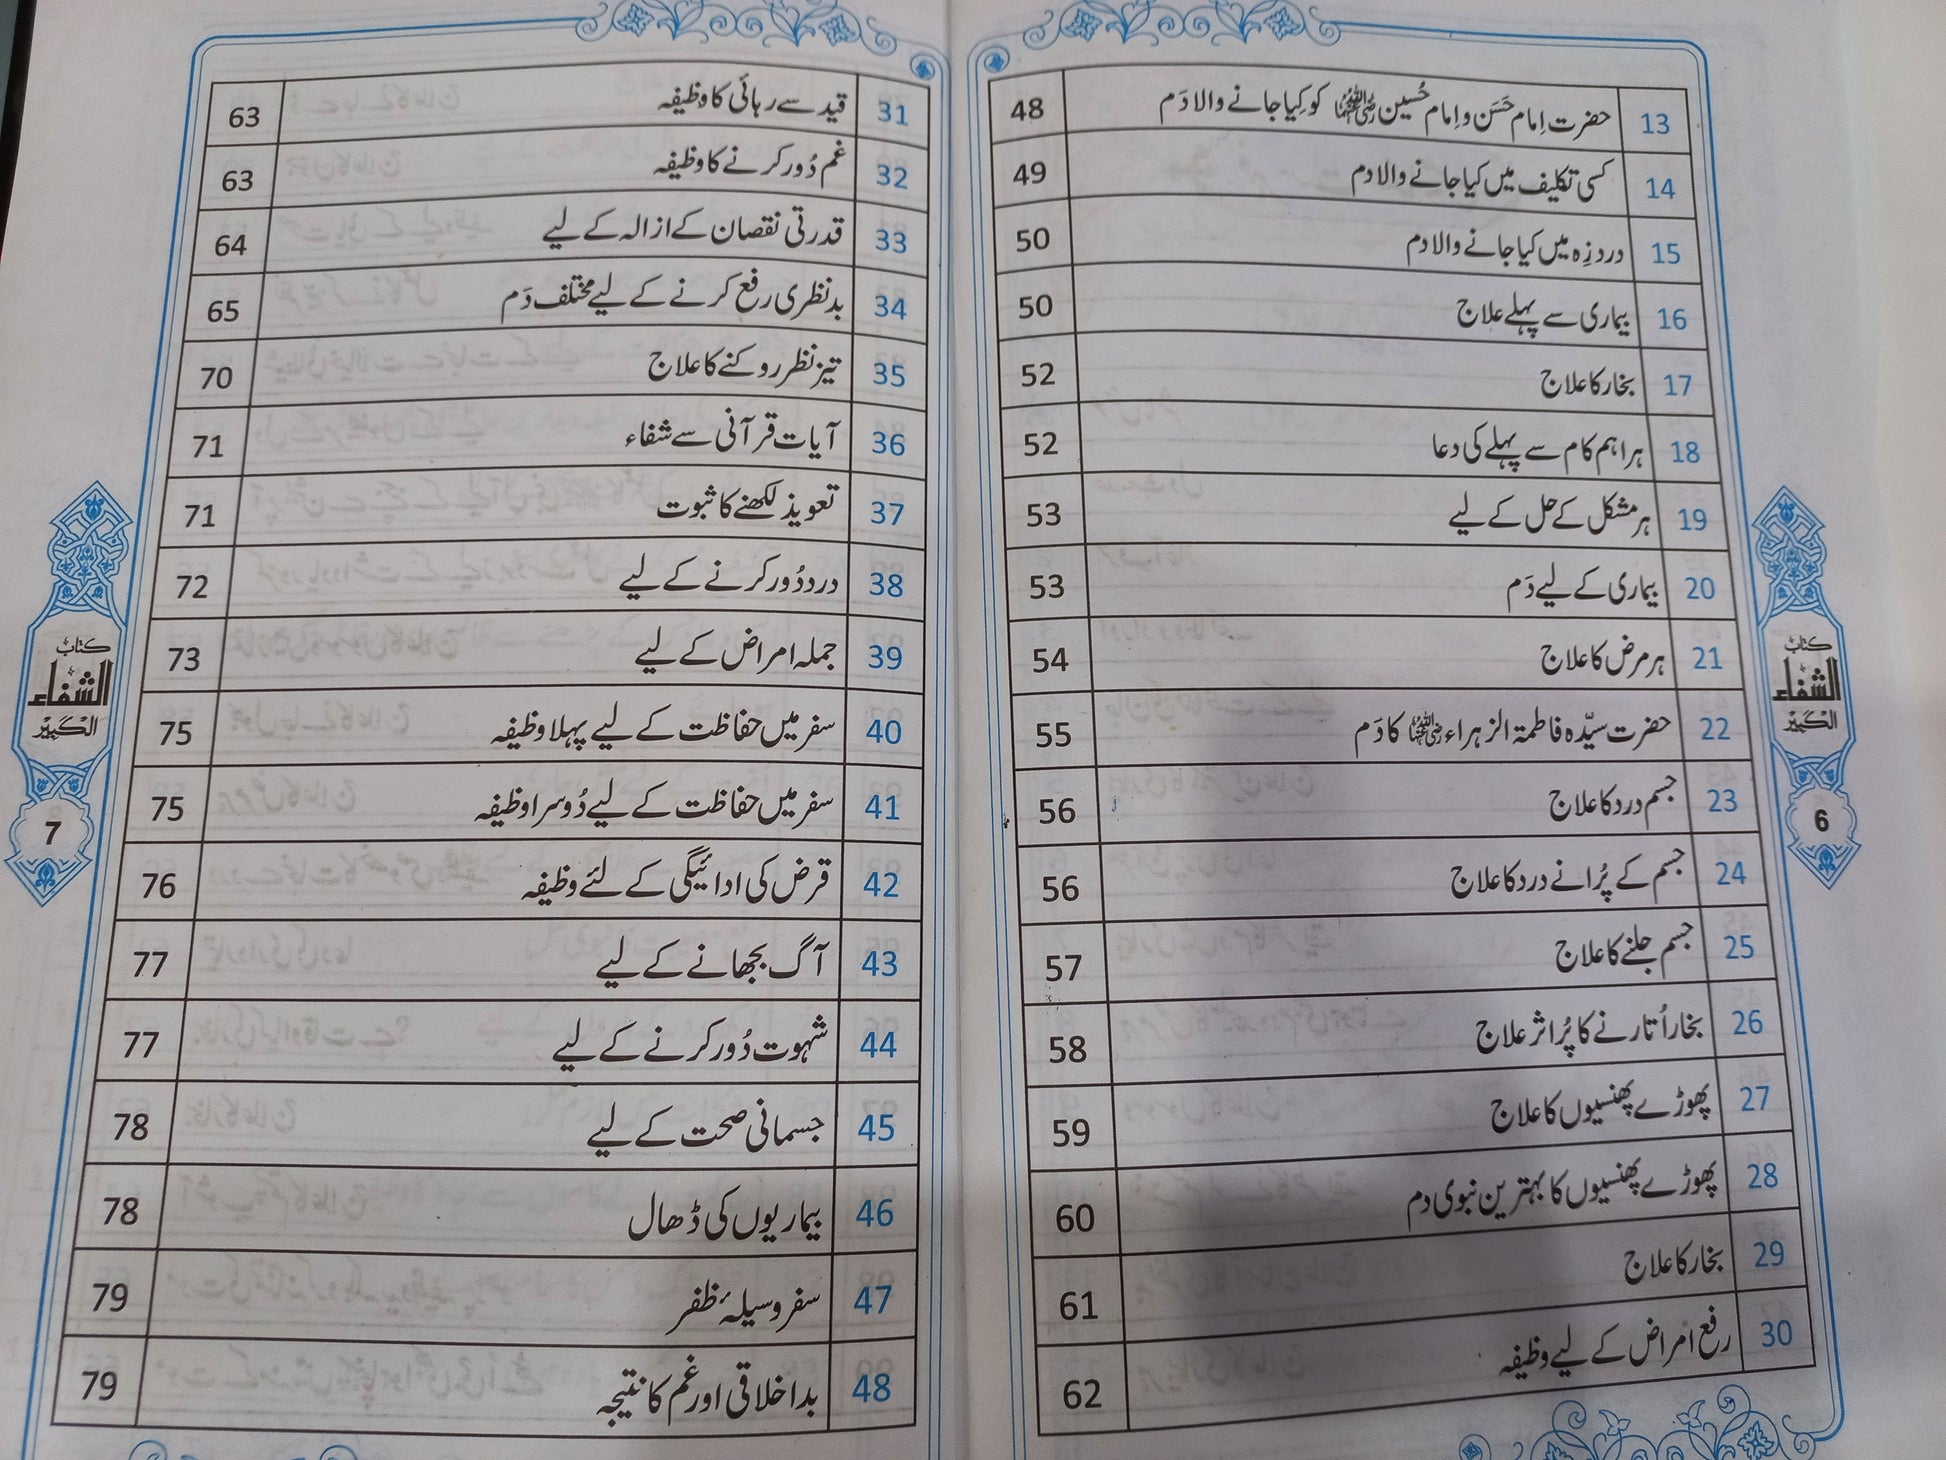 13 حضرت اِمام حَسَن و اِمام حُسین رضی اللہ عنہما کو کِیا جانے والا دَم 48
14 کسی تکلیف میں کیا جانے والا دم 49
15 دردِ زہ میں کیا جانے والا دم 50
16 بیماری سے پہلے علاج 50
17 بخار کا علاج 52
18 ہر اہم کام سے پہلے کی دعا 52
19 ہر مشکل کے حل کے لیے 53
20 بیماری کے لیے دَم 53
21 ہر مرض کا علاج 54
22 حضرت سیّدہ فاطمۃ الزہراء رضی اللہ عنہا کا دَم 55
23 جسم درد کا علاج 56
24 جسم کے پُرانے درد کا علاج 56
25 جسم جلنے کا علاج 57
26 بخار اُتارنے کا پُراثر علاج 58
27 پھوڑے پھنسیوں کا علاج 59
28 پھوڑے پھنسیوں کا بہترین نبوی دم 60
29 بخار کا علاج 61
30 رفع امراض کے لیے وظیفہ 62
کتابُ
الشفاء
الکَبِیْر
6
31 قید سے رہائی کا وظیفہ 63
32 غم دُور کرنے کا وظیفہ 63
33 قدرتی نقصان کے ازالہ کے لیے 64
34 بدنظری رفع کرنے کے لیے مختلف دَم 65
35 تیز نظر روکنے کا علاج 70
36 آیات قرآنی سے شفاء 71
37 تعویذ لکھنے کا ثبوت 71
38 درد دُور کرنے کے لیے 72
39 جملہ امراض کے لیے 73
40 سفر میں حفاظت کے لیے پہلا وظیفہ 75
41 سفر میں حفاظت کے لیے دُوسرا وظیفہ 75
42 قرض کی ادائیگی کے لئے وظیفہ 76
43 آگ بجھانے کے لیے 77
44 شہوت دُور کرنے کے لیے 77
45 جسمانی صحت کے لیے 78
46 بیماریوں کی ڈھال 78
47 سفر وسیلۂ ظفر 79
48 بداخلاقی اور غم کا نتیجہ 79
کتابُ
الشفاء
الکَبِیْر
7